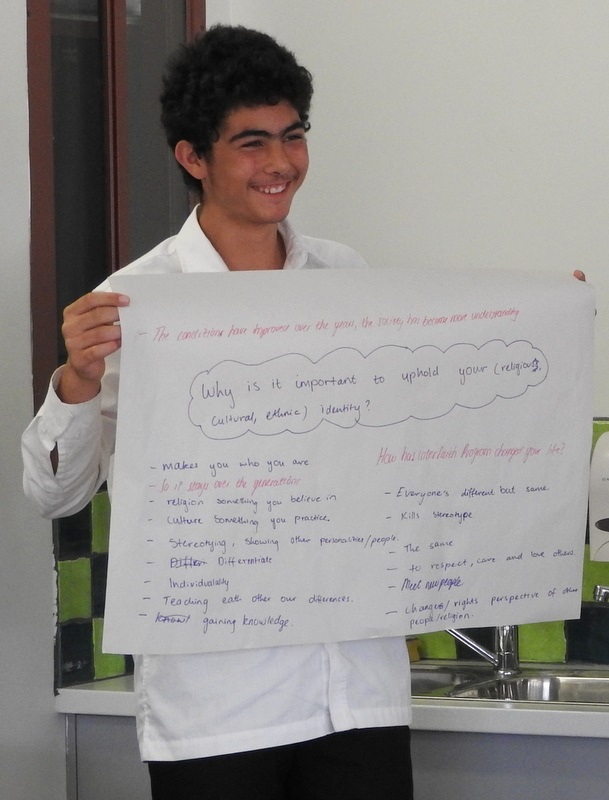 - The conditions have improved over the years, the society has become more understanding
Why is it important to uphold your (religious,
cultural, ethnic) identity?
- Makes you who you are
- So it stays over the generations
- religion something you believe in
- Culture Something you practice.
- Stereotying, showing other personalities/people.
- Differentiate
- Individuality
- Teaching eath other our differences.
- gaining knowledge.
How has interfaith Program changed your life?
- Everyone's different but same
- Kills stereotype
- The same
- to respect, care and love others.
- Meet new people
- changes/rights perspective of other
people/religion.